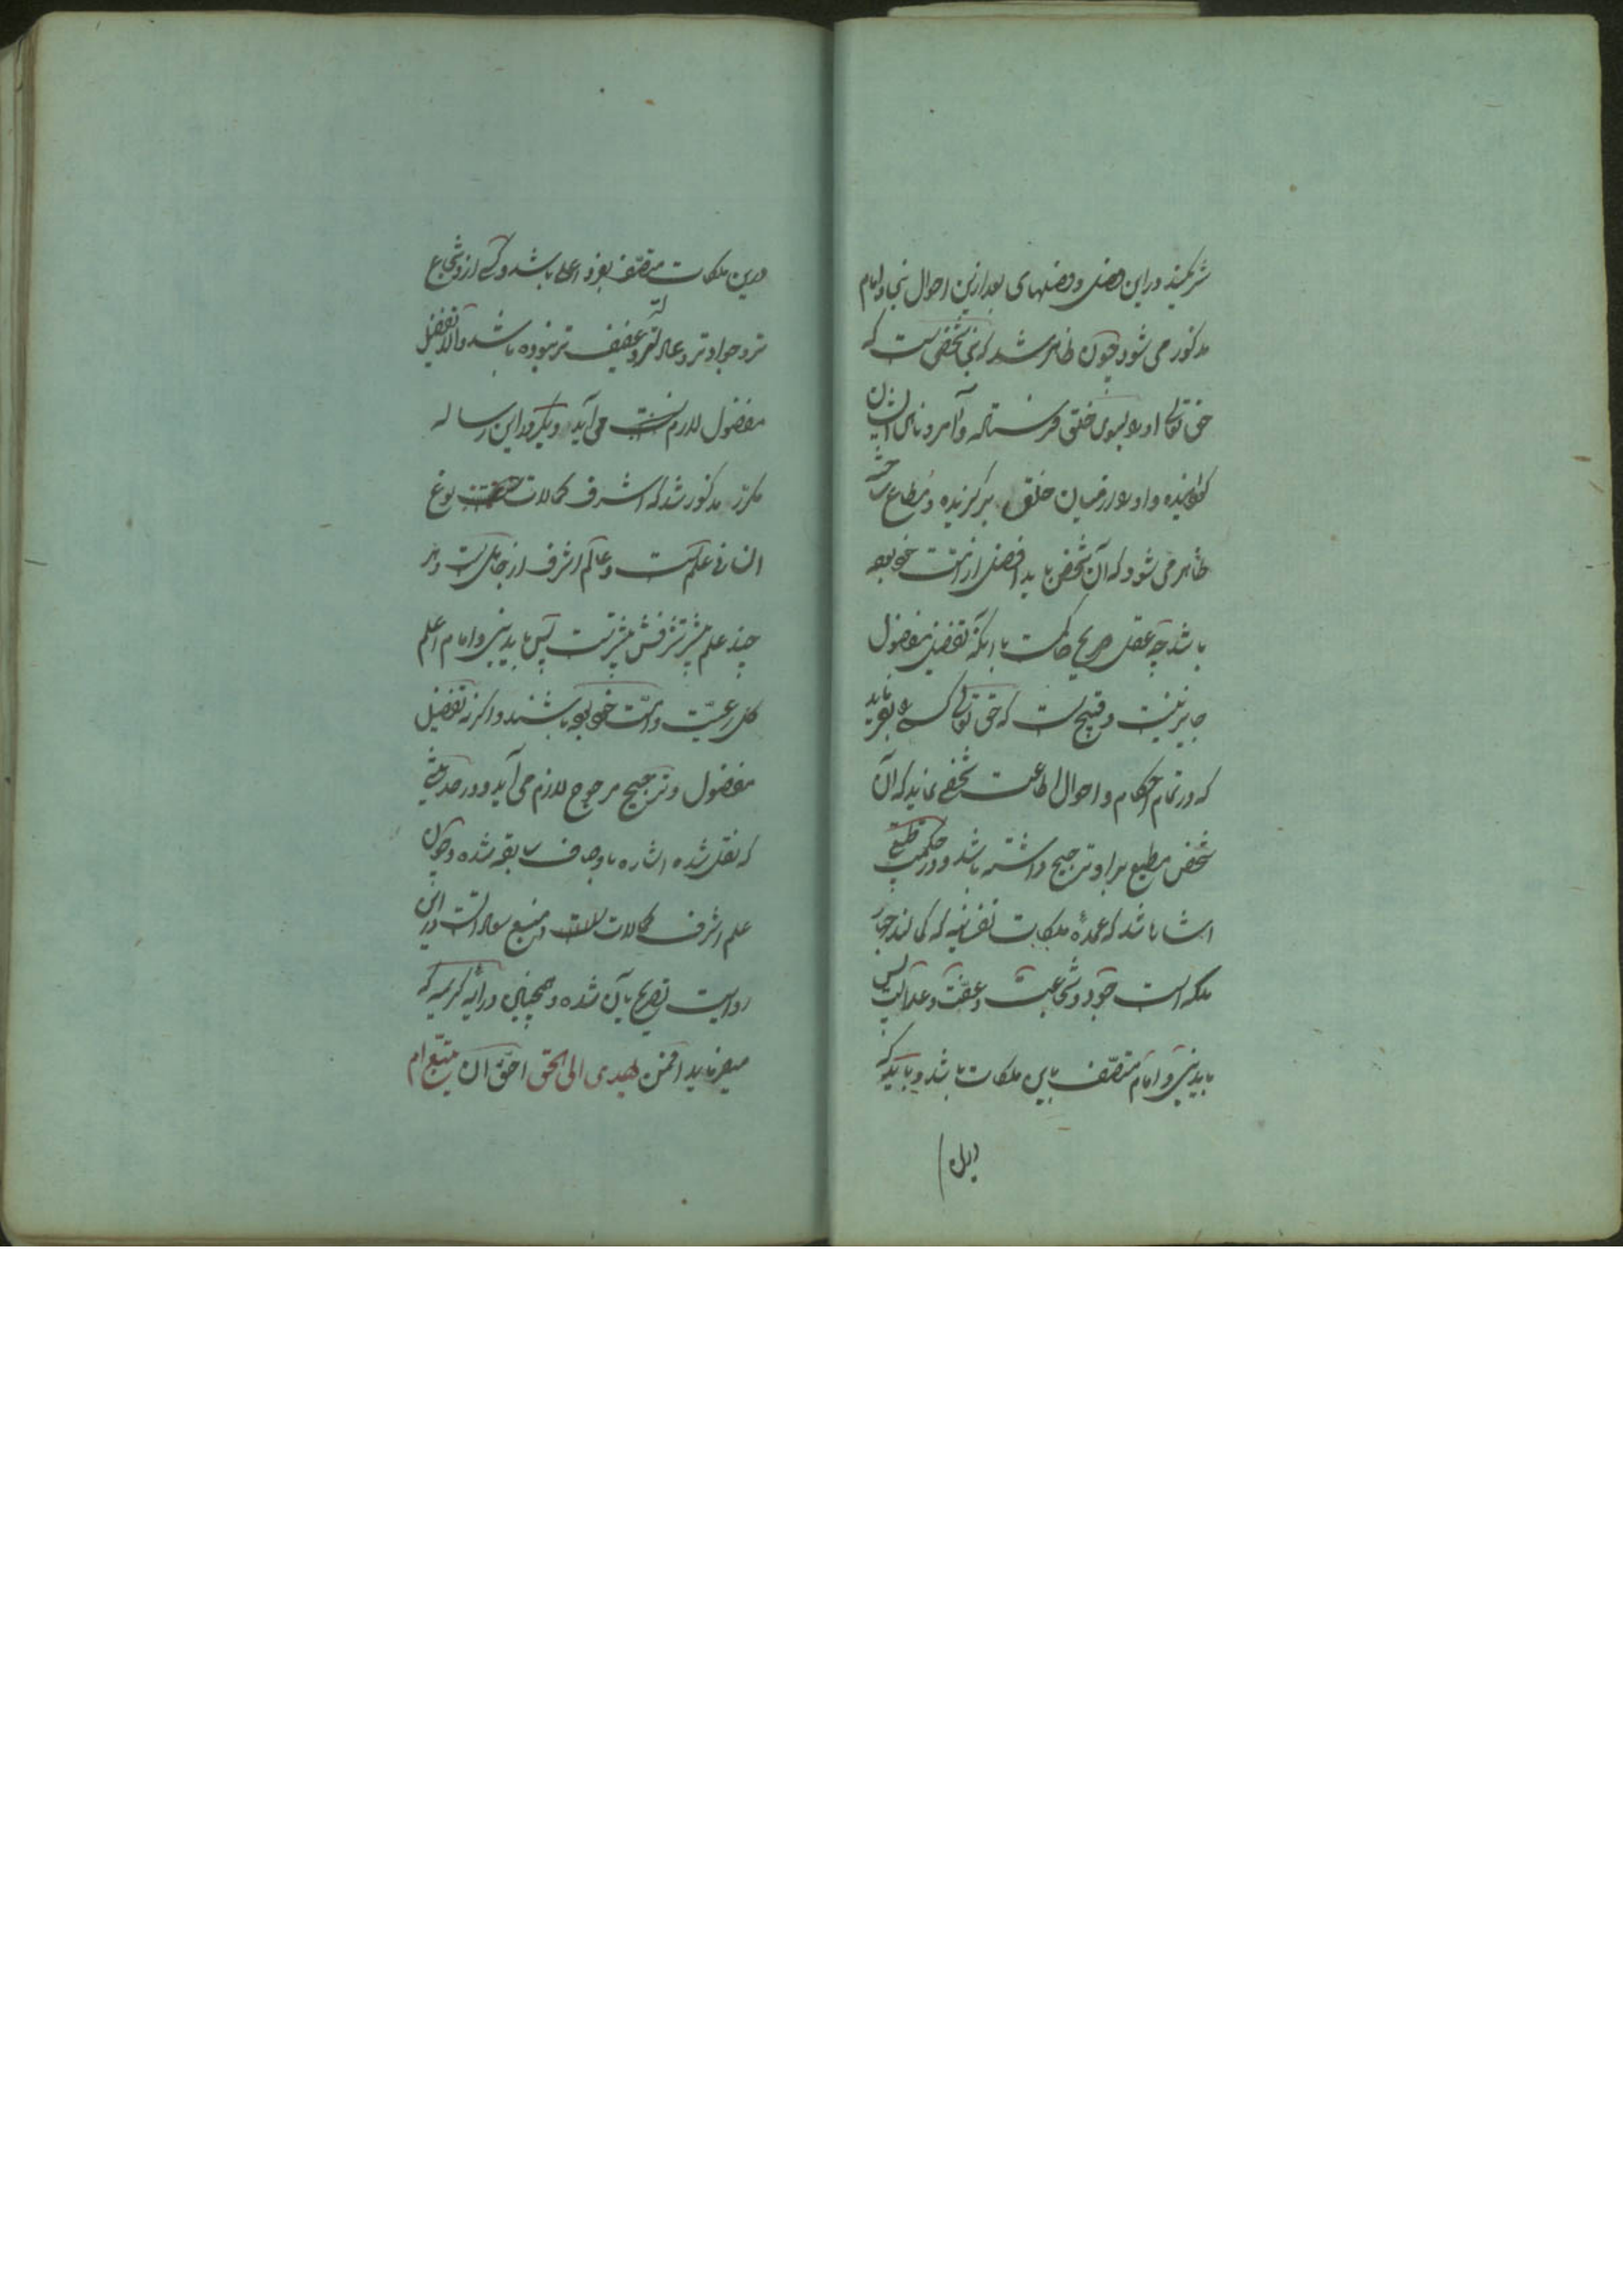 شریکیند در این فصل و فصلهای بعد ازین احوال نبی و امام
مذکور می شود چون ظاهر شد که نبی شخصی است که
حق تعالی او را بسوی خلق فرستاده و آمر و ناهی ایشان
گردانیده و او را از میان خلق برگزیده و مطاع ساخته
ظاهر می شود که آن شخص باید افضل از امت خود بوده
باشد چه عقل صریح حاکمست باینکه تفضیل مفضول
جایز نیست و قبیح است که حق تعالی کسی را بفرماید
که در تمام احکام و احوال اطاعت شخصی نماید که آن
شخص مطیع بر او ترجیح داشته باشد و در حکمت
اشارتا شد که عمده ملکات نفسانیه که کمالند چهار
ملکه است جود و شجاعت و عفت و عدالت پس
باید نبی و امام متصف باین ملکات باشد و باید که
درین ملکات متصف بفرد اعلی باشد و کسی ازو شجاع
تر و جوادتر و عادلتر و عفیف تر نبوده باشد و الا تفضیل
مفضول لازم می آید و دیگر در این رساله
مکرر مذکور شد که اشرف کمالات نوع
انسانی علم است و عالم اشرف از جاهل است و هر
چند علم بیشتر شرفش بیشتر است پس باید نبی و امام اعلم
کل رعیت و امت خود بوده باشند و اگر نه تفضیل
مفضول و ترجیح مرجوح لازم می آید و در حدیثی
که نقل شده اشاره باوصاف سابقه شده و چون
علم اشرف کمالات و منبع سعادات است در این
روایت تصریح بآن شده و همچنین در آیه کریمه که
میفرماید افمن یهدی الی الحق احق ان یتبع ام